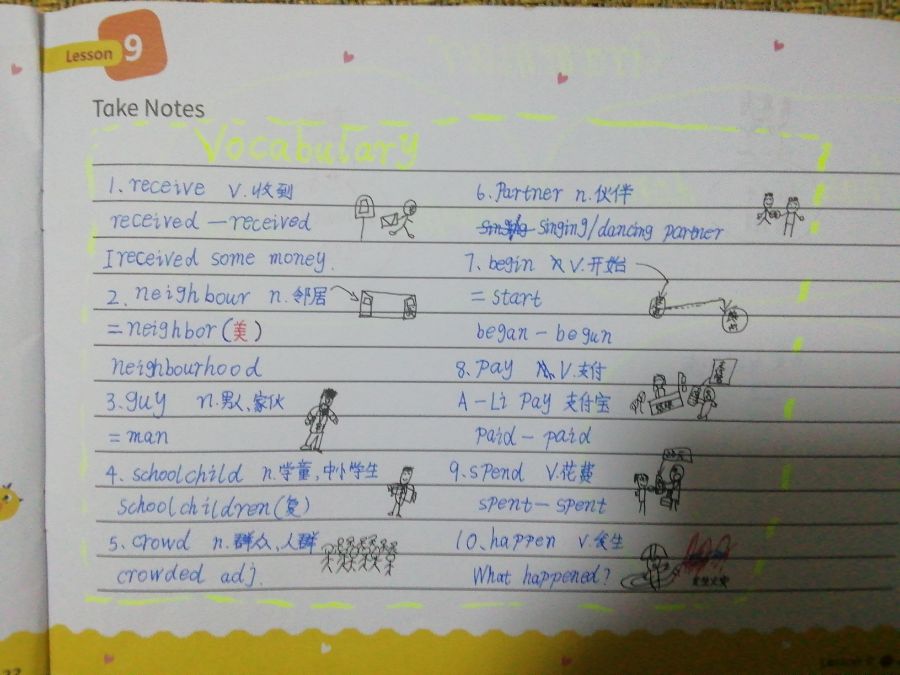 Lesson 9
Take Notes
Vocabulary
1. receive v. 收到
received — received
I received some money.
2. neighbour n. 邻居
= neighbor (美)
neighbourhood
3. guy n. 男人、家伙
= man
4. schoolchild n. 学童, 中小学生
schoolchildren (复)
5. crowd n. 群众、人群
crowded adj.
6. Partner n. 伙伴
singing/dancing partner
7. begin v. 开始
= start
began - begun
8. pay v. 支付
A - Li Pay 支付宝
paid - paid
9. spend v. 花费
spent - spent
10. happen v. 发生
What happened?